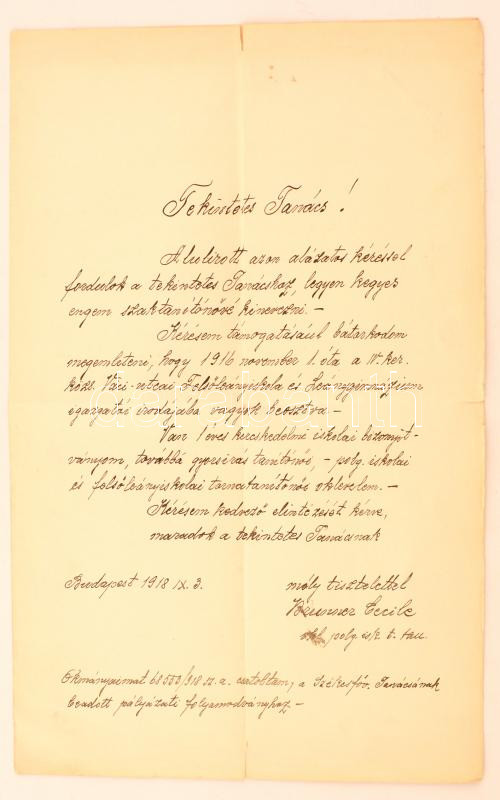 Tekintetes Tanács!
Alulírott azon alázatos kéréssel
fordulok a tekintetes Tanácshoz, legyen kegyes
engem szaktanítónővé kinevezni. —
Kérésem támogatásául bátorkodom
megemlíteni, hogy 1916 november 1. óta a IV. ker.
közs. Váci-utcai Felsőleányiskola és Leánygimnázium
igazgatói irodájába vagyok beosztva. —
Van 1 éves kereskedelmi iskolai bizonyít-
ványom, továbbá gyorsírás tanítónői, — polg. iskolai
és felsőleányiskolai tornatanítónői oklevelem. —
Kérésem kedvező elintézését kérve,
maradok a tekintetes Tanácsnak
Budapest 1918 IX. 3.
mély tisztelettel
Brunner Cecile
okl. polg. isk. t.
Okmányaimat 61550/918 sz. a. csatoltam, a Székesfőv. Tanácsának
beadott pályázati folyamodványhoz —
darabanth